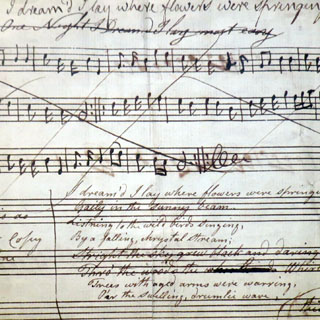 I dream'd I lay where flowers were springing
One Night I Dream'd I lay most easy
I dream'd I lay where flowers were springing
Gaily in the sunny beam
Listning to the wild birds singing,
By a falling, chrystal stream;
Straight the sky grew black and daring
Thro' the woods the
Trees with aged arms were warring,
O'er the swelling, drumlie wave